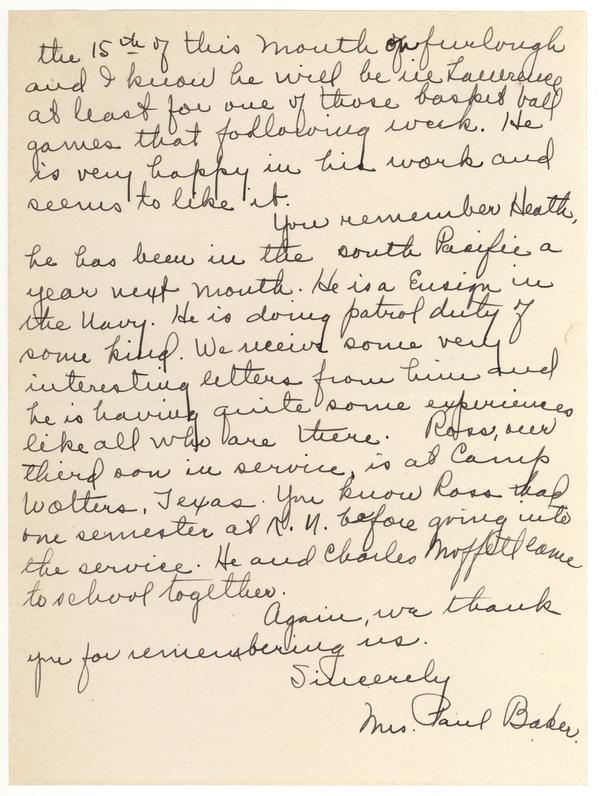 the 15th of this month on furlough
and I know he will be in Lawrence
at least for one of those basket ball
games that following week. He
is very happy in his work and
seems to like it.
You remember Heath,
he has been in the south Pacific a
year next month. He is a Ensign in
the Navy. He is doing patrol duty of
some kind. We receive some very
interesting letters from him and
he is having quite some experiences
like all who are there. Ross, our
third son in service, is at Camp
Wolters, Texas. You know Ross had
one semester at K. U. before going into
the service. He and Charles Moffett came
to school together.
Again, we thank
you for remembering us.
Sincerely
Mrs. Paul Baker.